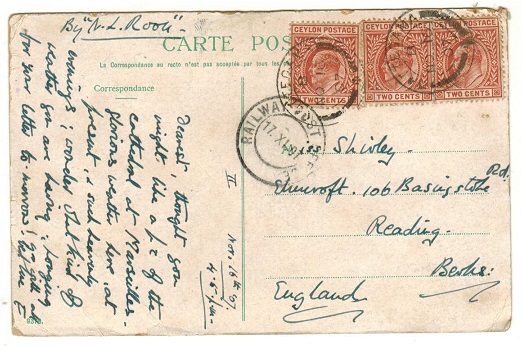 By "N. L. Roon"
CARTE POS
La Correspondance au recto n'est pas acceptée par tous les
Correspondance
CEYLON POSTAGE
TWO CENTS
CEYLON POSTAGE
TWO CENTS
CEYLON POSTAGE
TWO CENTS
RAILWAY POST
Dearest, thought you
might like a p.c of the
cathedral at Marseilles.
glorious weather here at
present, & such heavenly
evenings; wonder what kind of
weather you are having; longing
for your letter to morrow
II
Nov. 16th 07.
Miss Shirley.
Elmcroft. 106 Basingstoke Rd.
Reading.
Berks:
England